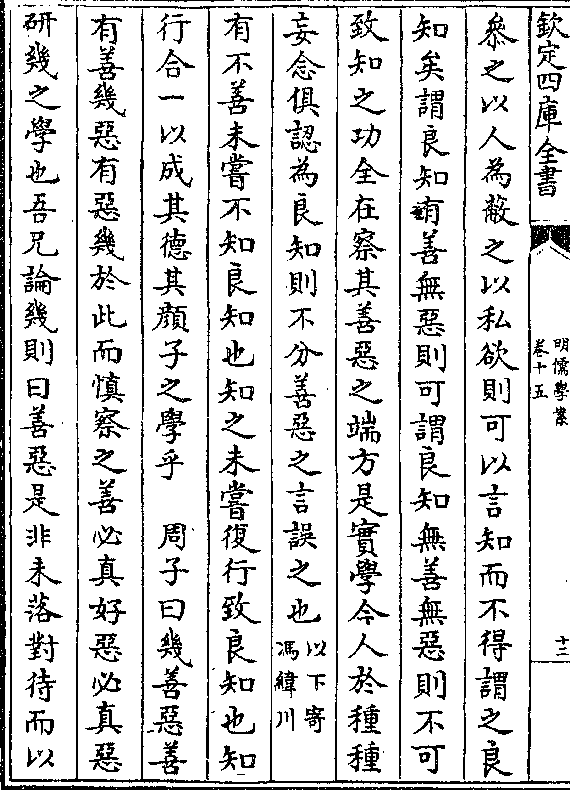 欽定四庫全書
明儒學案
卷十五
十三
叅之以人為蔽之以私欲則可以言知而不得謂之良
知矣謂良知有善無惡則可謂良知無善無惡則不可
致知之功全在察其善惡之端方是實學今人於種種
妄念俱認為良知則不分善惡之言誤之也以下寄馮緯川
有不善未嘗不知良知也知之未嘗復行致良知也知
行合一以成其德其顔子之學乎　周子曰幾善惡善
有善幾惡有惡幾於此而慎察之善必真好惡必真惡
研幾之學也吾兄論幾則曰善惡是非未落對待而以